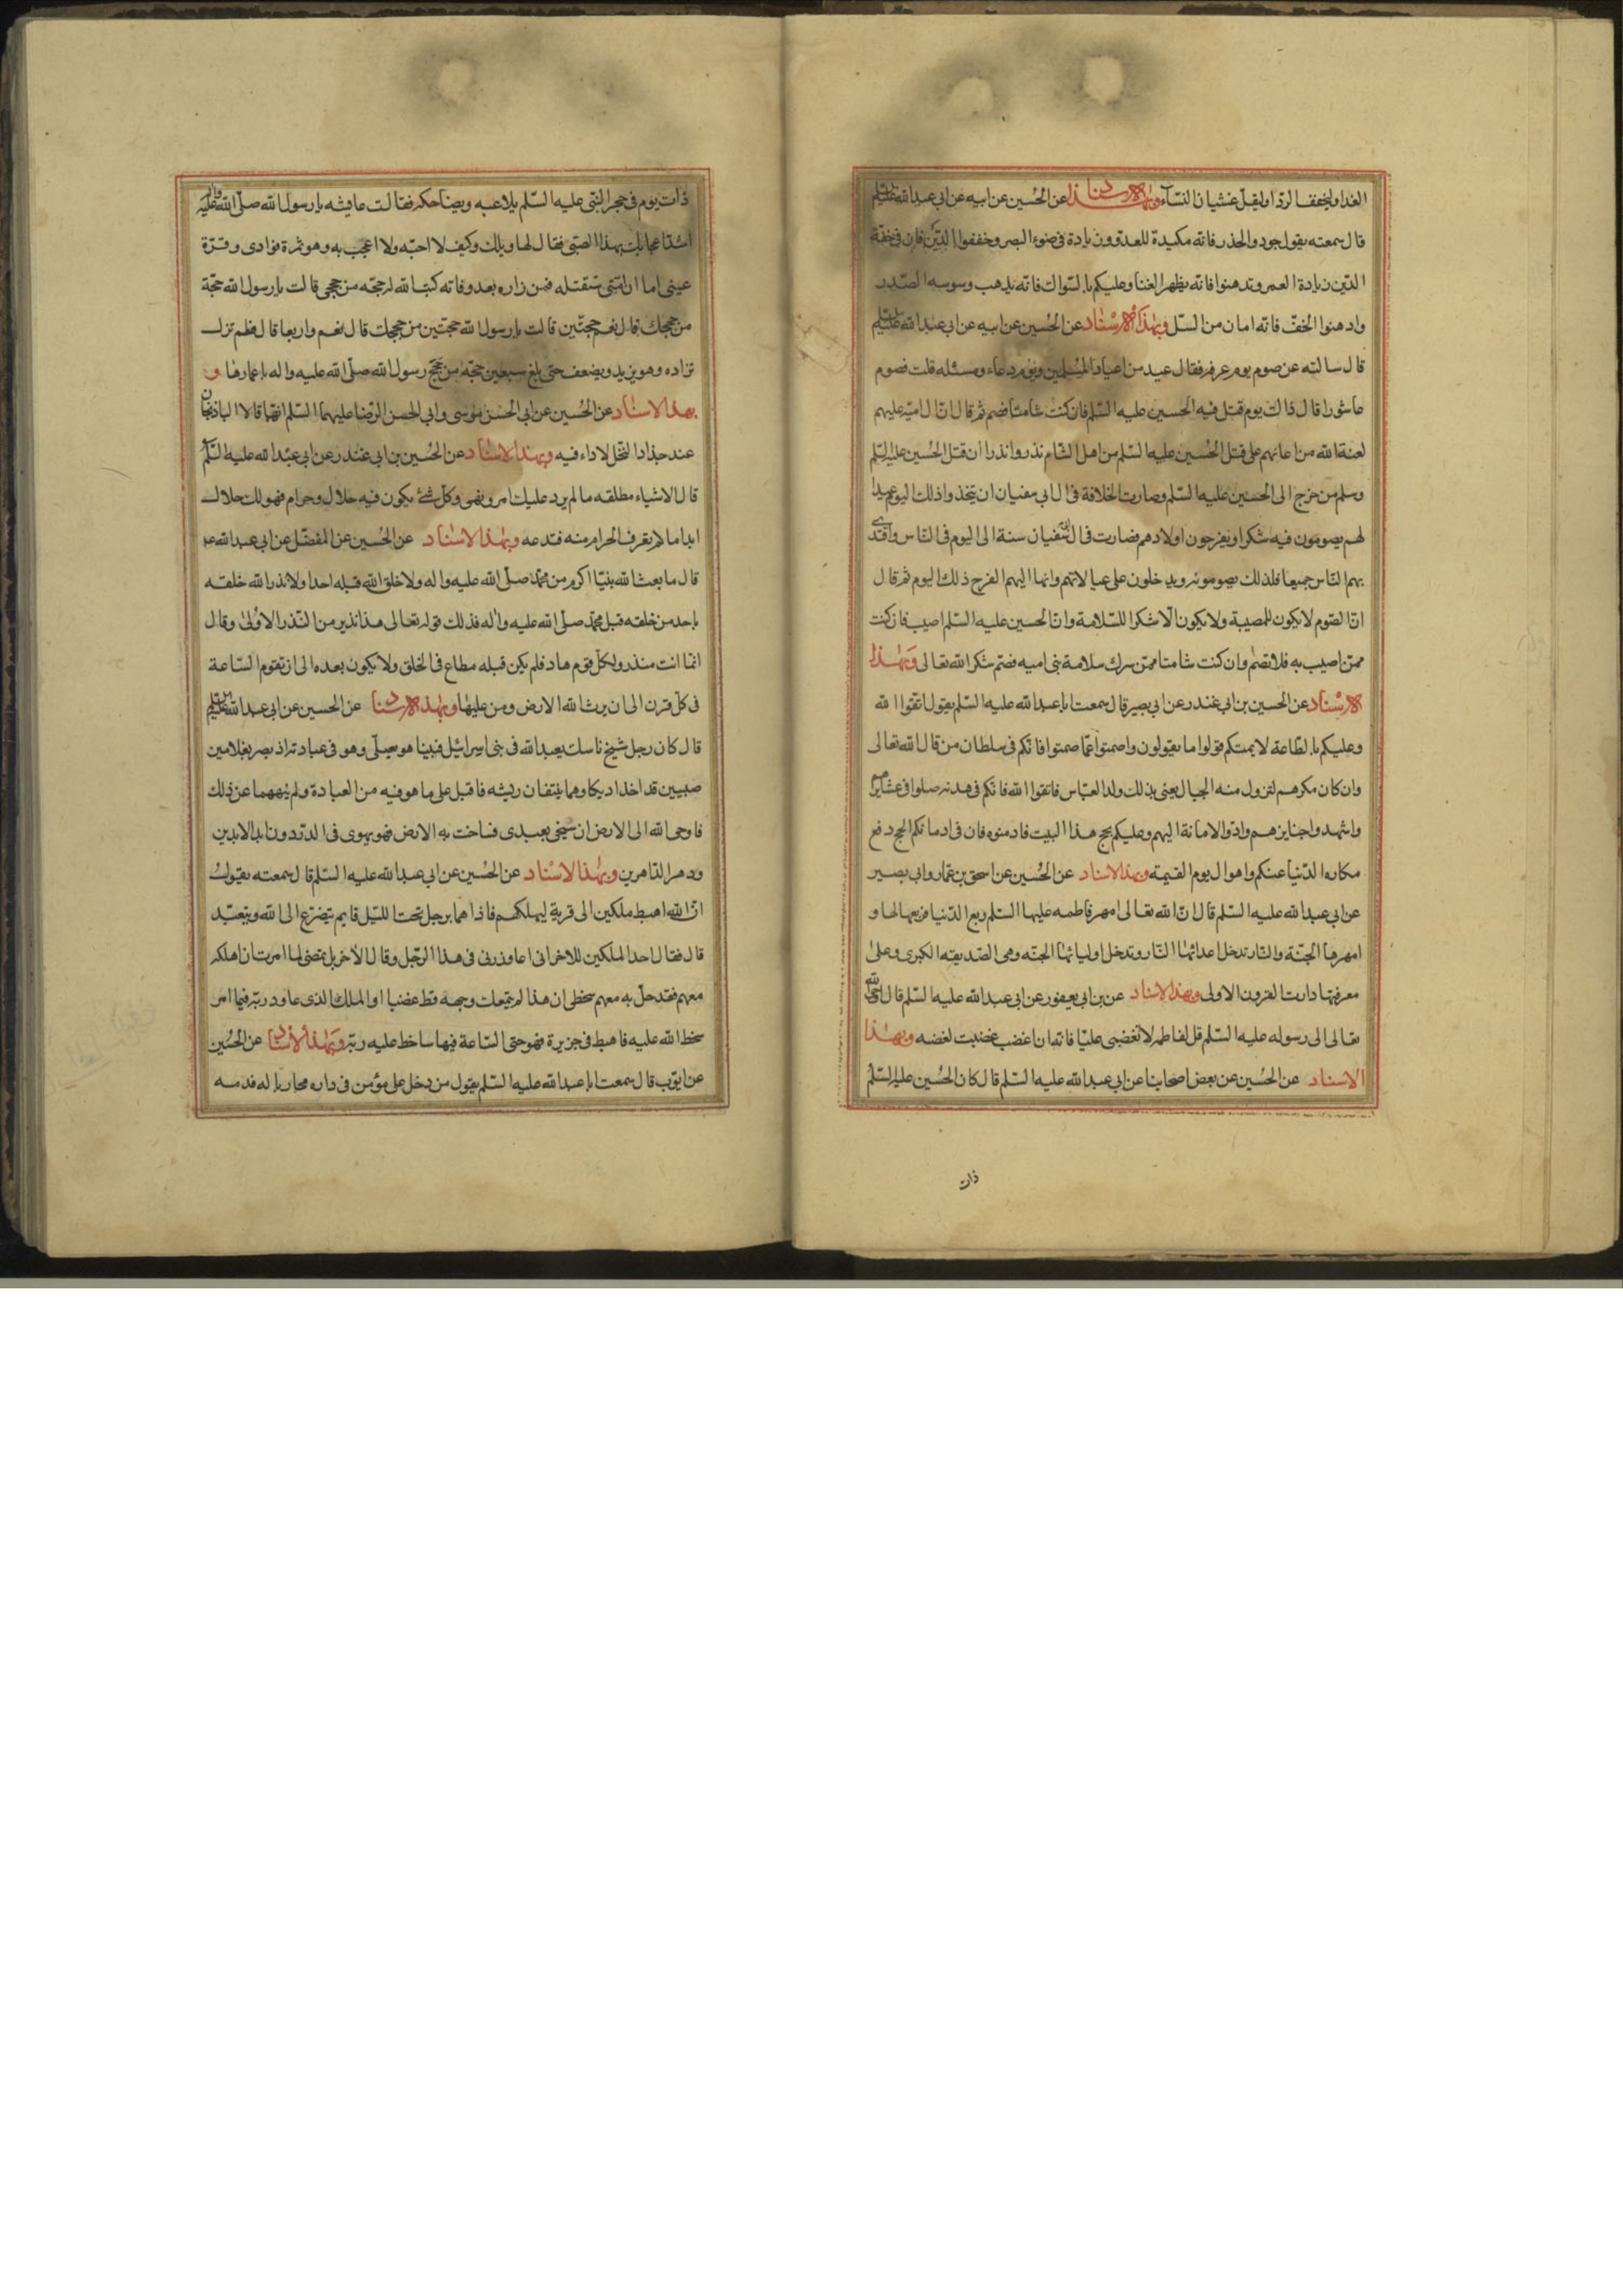 الغدا وليخفف الردا وليقل غشيان النساء وبهذا الاسناد عن الحسين عن ابيه عن ابي عبدالله عليه السلم
قال سمعته يقول جودوا لحذر فانه مكيدة للعدو وزيادة في ضوء البصر وخففوا الدين فان في خفة
الدين زيادة العمر وتدهنوا فانه يظهر الغنا وعليكم بالسواك فانه يذهب وسوسه الصدر
وادهنوا الخف فانه امان من السل وبهذا الاسناد عن الحسين عن ابيه عن ابي عبدالله عليه السلم
قال سالته عن صوم يوم عرفه فقال عيد من اعياد المسلمين ويوم دعاء ومسئله قلت فصوم
عاشورا قال ذاك يوم قتل فيه الحسين عليه السلم فان كنت شامتا فصم ثم قال ان ال اميه عليهم
لعنة الله من اعانهم على قتل الحسين عليه السلم من اهل الشام نذروا نذرا ان قتل الحسين عليه السلم
وسلم من خرج الى الحسين عليه السلم وصارت الخلافة في ال ابي سفيان ان يتخذوا ذلك اليوم عيدا
لهم يصومون فيه شكرا ويفرحون اولادهم فصارت في ال ابي سفيان سنة الى اليوم في الناس واقتدى
بهم الناس جميعا فلذلك يصومونه ويدخلون على عيالاتهم واهاليهم الفرح ذلك اليوم ثم قال
ان الصوم لا يكون للمصيبة ولا يكون الا شكرا للسلامة وان الحسين عليه السلم اصيب فان كنت
ممن اصيب به فلا تصم وان كنت شامتا ممن سرك سلامة بني اميه فصم شكر الله تعالى وبهذا
الاسناد عن الحسين بن ابي غندر عن ابي بصير قال سمعت ابا عبدالله عليه السلم يقول اتقوا الله
وعليكم بالطاعة لايمتكم قولوا ما يقولون واصمتوا عما صمتوا فانكم في سلطان من قال الله تعالى
وان كان مكرهم لتزول منه الجبال يعني بذلك ولد العباس فاتقوا الله فانكم في هدنه صلوا في عشايرهم
واشهدوا جنايزهم وادوا الامانة اليهم وعليكم بحج هذا البيت فادمنوه فان في ادمانكم الحج دفع
مكاره الدنيا عنكم واهوال يوم القيمة وبهذا الاسناد عن الحسين عن اسحق بن عمار وابي بصير
عن ابي عبدالله عليه السلم قال ان الله تعالى امهر فاطمه عليها السلم ربع الدنيا فربعها لها و
امهرها الجنة والنار تدخل اعدائها النار وتدخل اوليائها الجنه وهي الصديقه الكبرى وعلى
معرفتها دارت القرون الاولى وبهذا الاسناد عن بن ابي يعفور عن ابي عبدالله عليه السلم قال اوحى الله
تعالى الى رسوله عليه السلم قل لفاطمه لا تغضبي عليا فانه ان غضب غضبت لغضبه وبهذا
الاسناد عن الحسين عن بعض اصحابنا عن ابي عبدالله عليه السلم قال كان الحسين عليه السلم
ذات
ذات يوم في حجر النبي عليه السلم يلاعبه ويضاحكه فقالت عايشه يا رسول الله صلى الله عليه واله
اشد اعجابك بهذا الصبي فقال لها ويلك وكيف لا احبه ولا اعجب به وهو ثمرة فوادى وقرة
عيني اما ان امتي ستقتله فمن زاره بعد وفاته كتب الله له حجه من حججي قالت يا رسول الله حجة
من حججك قال نعم حجتين قالت يا رسول الله حجتين من حججك قال نعم واربعا قال فلم تزل
تزاده وهو يزيد ويضعف حتى بلغ سبعين حجه من حجج رسول الله صلى الله عليه واله باعمارها و
بهذا الاسناد عن الحسين عن ابي الحسن موسى وابي الحسن الرضا عليهما السلم انهما قالا الباذنجان
عند جذاذ النخل لا داء فيه وبهذا الاسناد عن الحسين بن ابي غندر عن ابي عبدالله عليه السلم
قال الاشياء مطلقه ما لم يرد عليك امر ونهى وكل شئ يكون فيه حلال وحرام فهو لك حلال
ابدا ما لم تعرف الحرام منه فتدعه وبهذا الاسناد عن الحسين عن المفضل عن ابي عبدالله عم
قال ما بعث الله نبيا اكرم من محمد صلى الله عليه واله ولا خلق الله قبله احدا ولا نذر الله خلقه
باحد من خلقه قبل محمد صلى الله عليه واله فذلك قوله تعالى هذا نذير من النذر الاولى وقال
انما انت منذر ولكل قوم هاد فلم يكن قبله مطاع في الخلق ولا يكون بعده الى ان تقوم الساعة
في كل قرن الى ان يرث الله الارض ومن عليها وبهذا الاسناد عن الحسين عن ابي عبدالله عليه السلم
قال كان رجل شيخ ناسك يعبد الله في بني اسرائيل فبينا هو يصلي وهو في عبادته اذ بصر بغلامين
صبيين قد اخذا ديكا وهما ينتفان ريشه فاقبل على ما هو فيه من العبادة ولم ينههما عن ذلك
فاوحى الله الى الارض ان سيخي بعبدى فساخت به الارض فهو يهوى في الدردون ابد الابدين
ودهر الداهرين وبهذا الاسناد عن الحسين عن ابي عبدالله عليه السلم قال سمعته يقول
ان الله اهبط ملكين الى قرية ليهلكهم فاذا هما برجل تحت الليل قايم يتضرع الى الله ويتعبد
قال فقال احد الملكين للاخر اني اعاود ربي في هذا الرجل وقال الاخر بل تمضي لما امرت
معهم فقد حل به معهم سخطي ان هذا لم يتمعك وجهه قط غضبا لي والملك الذى عاود ربه فيما امر
سخط الله عليه فاهبط في جزيرة فهو حتى الساعة فيها ساخط عليه ربه وبهذا الاسناد عن الحسين
عن ايوب قال سمعت ابا عبدالله عليه السلم يقول من دخل على مؤمن في داره محاربا له فدمه